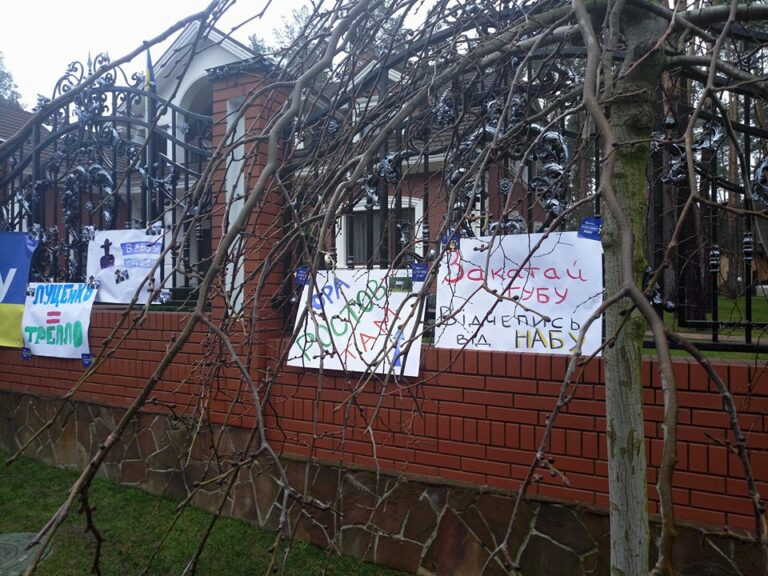 ЛУЦЕНКО
=
ТРЕПЛО
ЮРА
РОСТОВ
ТАМ
Закатай
ГУБУ
Відчепись
від НАБУ